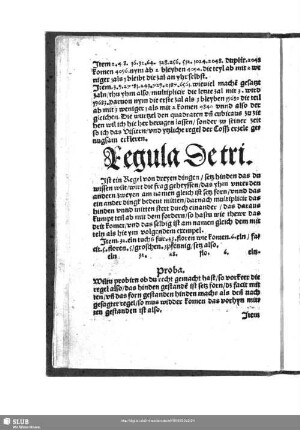 Item 2. 4. 8. 16. 32. 64. 128. 256. 512. 1024. 2048. duplir. 2048
komen 4096. nym ab 2 bleyben 4094. die teyl ab mit
zal 2 bleibt die zal an yhr selbst.
Item. 3. 9. 27. 81. 243. 729. 2187. 6561. wieuiel machē gesatzte
zaln/ thu yhm also. multiplicir die letzte zal mit 3. wird
19683. Daruon nym die erste zal als 3 bleyben die teil
ab mit 2 weniger 1 als mit 2 komen vnnd also der
gleichen. Die wurtzel den quadraten vñ cubicatis zu zie
hen wil ich hie her beruen lassen/ sonder zu seiner zeit
so ich das Visiern vnd ytzliche regel der Coss erzele ge
nugsam erkleren.
Regula Detri.
Ist ein Regel von dreyen dingen/ setz hinden das du
wissen wilt/ wirt der frag geheyssen/ das yhm vnter den
andern zweyen am namen gleich ist setz forn/ vnnd das
ein ander dingk bedeut mitten/ darnach multiplicir das
hinden vnnd mitten stet durch einander/ das daraus
kumpt teil ab mit dem fordern/ so hastu wie thewr das
dritt komet/ vnd das selbig ist am namen gleich dem mit
teln als hie ym volgendem exempel.
Item. 32. eln tuchs fur 28. floren wie komen 6. eln/ fa
cit. 5. floren. 5. groschen. 3 pfennig. setz also/
eln 32. 28. flo. 6. eln.
Proba.
Wiltu probirn ob du recht gemacht hast/ so vorkere die
regel also/ das hinden gestanden ist setz forn/ di facit mit
ten/ vñ das forn gestanden hinden machs als den nach
gesagter regel/ so mus widder komen das vorhyn mit
ten gestanden ist also.
Item
SLUB